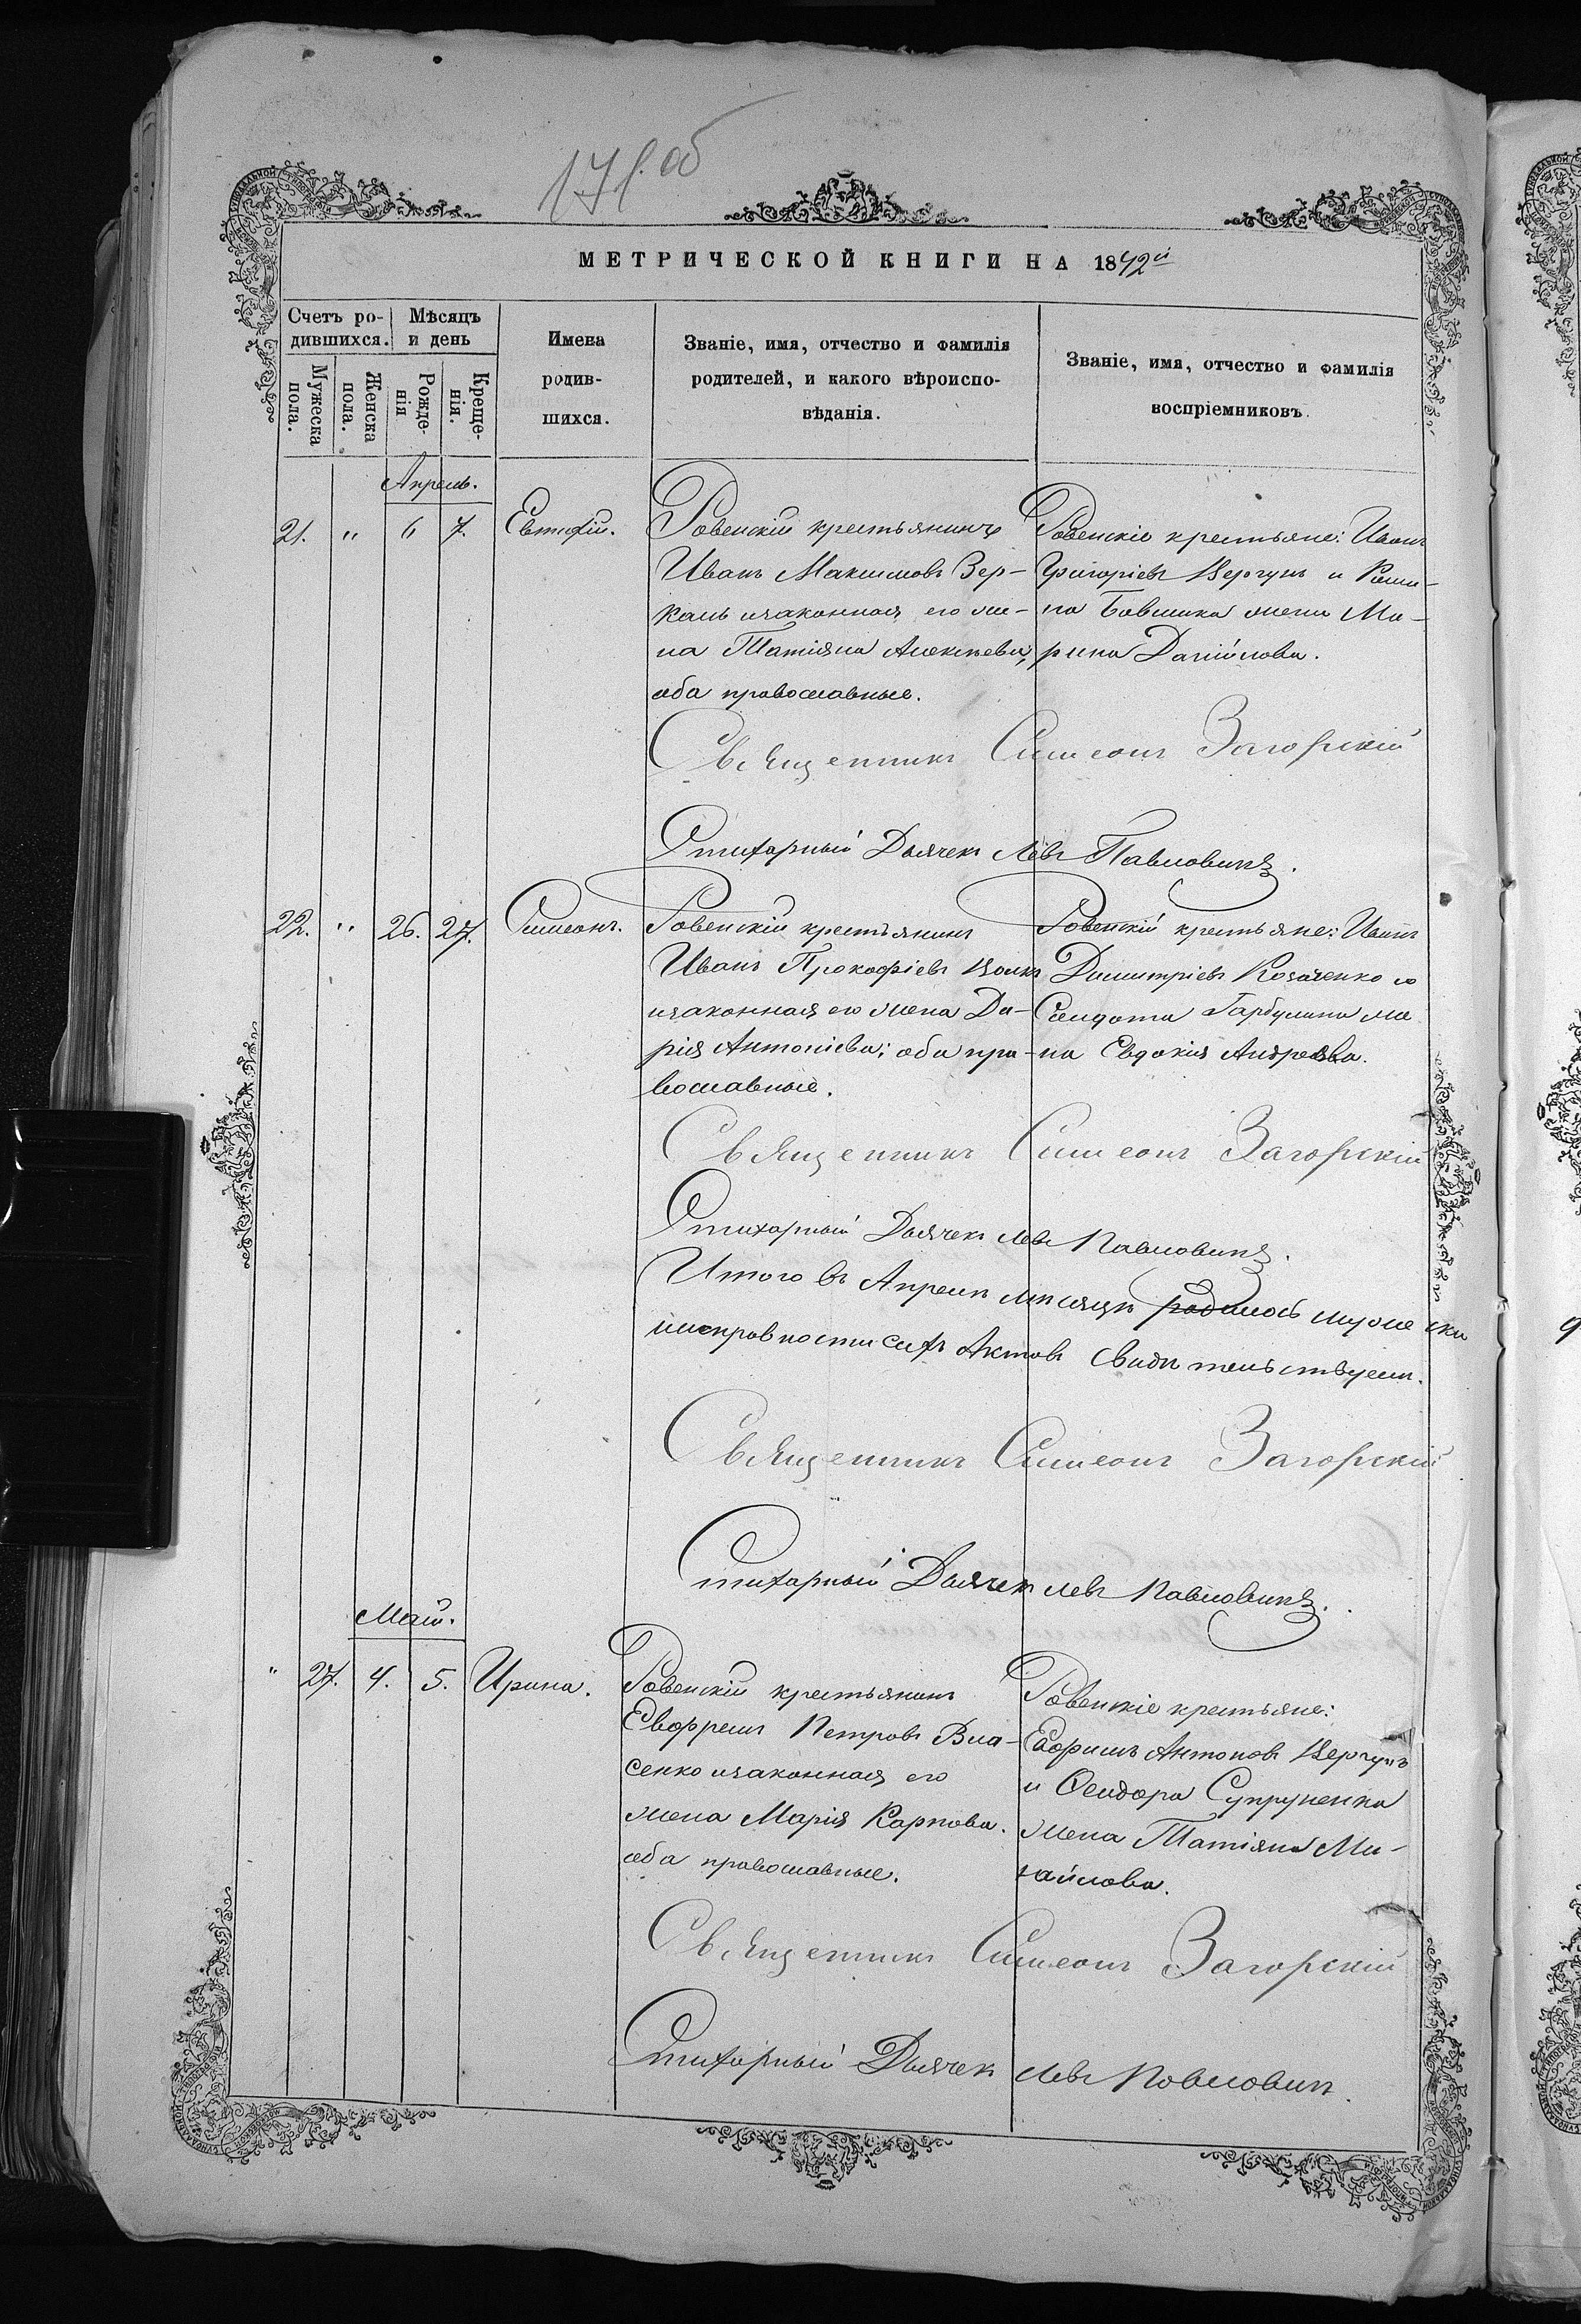 171. об
МЕТРИЧЕСКОЙ КНИГИ НА 1872й
Счетъ ро-
дившихся.
Мѣсяцъ
и день
Мужеска
пола.
Женска
пола.
Рожде-
нія
Креще-
нія.
Имена
родив-
шихся.
Званіе, имя, отчество и фамилія
родителей, и какого вѣроиспо-
вѣданія.
Званіе, имя, отчество и фамилія
воспріемниковъ.
Апрель.
21. " 6 7. Евтихій.
Ровенскій крестьянинъ
Иванъ Максимовъ Вер-
каль изаконная его же-
на Татіяна Алексѣева,
оба православные.
Ровенскіе крестьяне: Иванъ
Григоріевъ Вергунъ и
на жена Ма-
рина Даніилова.
Священникъ Симеонъ Загорскій
Стихарный Дьячекъ Левъ Павловичъ.
22. " 26. 27. Симеонъ.
Ровенскій крестьянинъ
Иванъ Прокофіевъ
изаконная его жена Да-
рія Антоніева; оба пра-
вославные.
Ровенскій крестьяне: Иванъ
Димитріевъ Козаченко и
Солдата же
на Евдокія Андреева.
Священникъ Симеонъ Загорскій
Стихарный Дьячекъ Левъ Павловичъ.
Итого въ Апрелѣ мѣсяцѣ родилось мужеска
исправности сихъ Актовъ свидѣтельствуемъ.
Священникъ Симеонъ Загорскій
Стихарный Дьячекъ Левъ Павловичъ.
Май.
" 27. 4. 5. Ирина.
Ровенскій крестьянинъ
Евфремъ Петровъ Вла-
сенко изаконная его
жена Марія Карпова.
оба православные.
Ровенскіе крестьяне:
Антоновъ Вергунъ
и Феодора Супруненка
жена Татіяна Ми-
хайлова.
Священникъ Симеонъ Загорскій
Стихарный Дьячекъ Левъ Павловичъ.